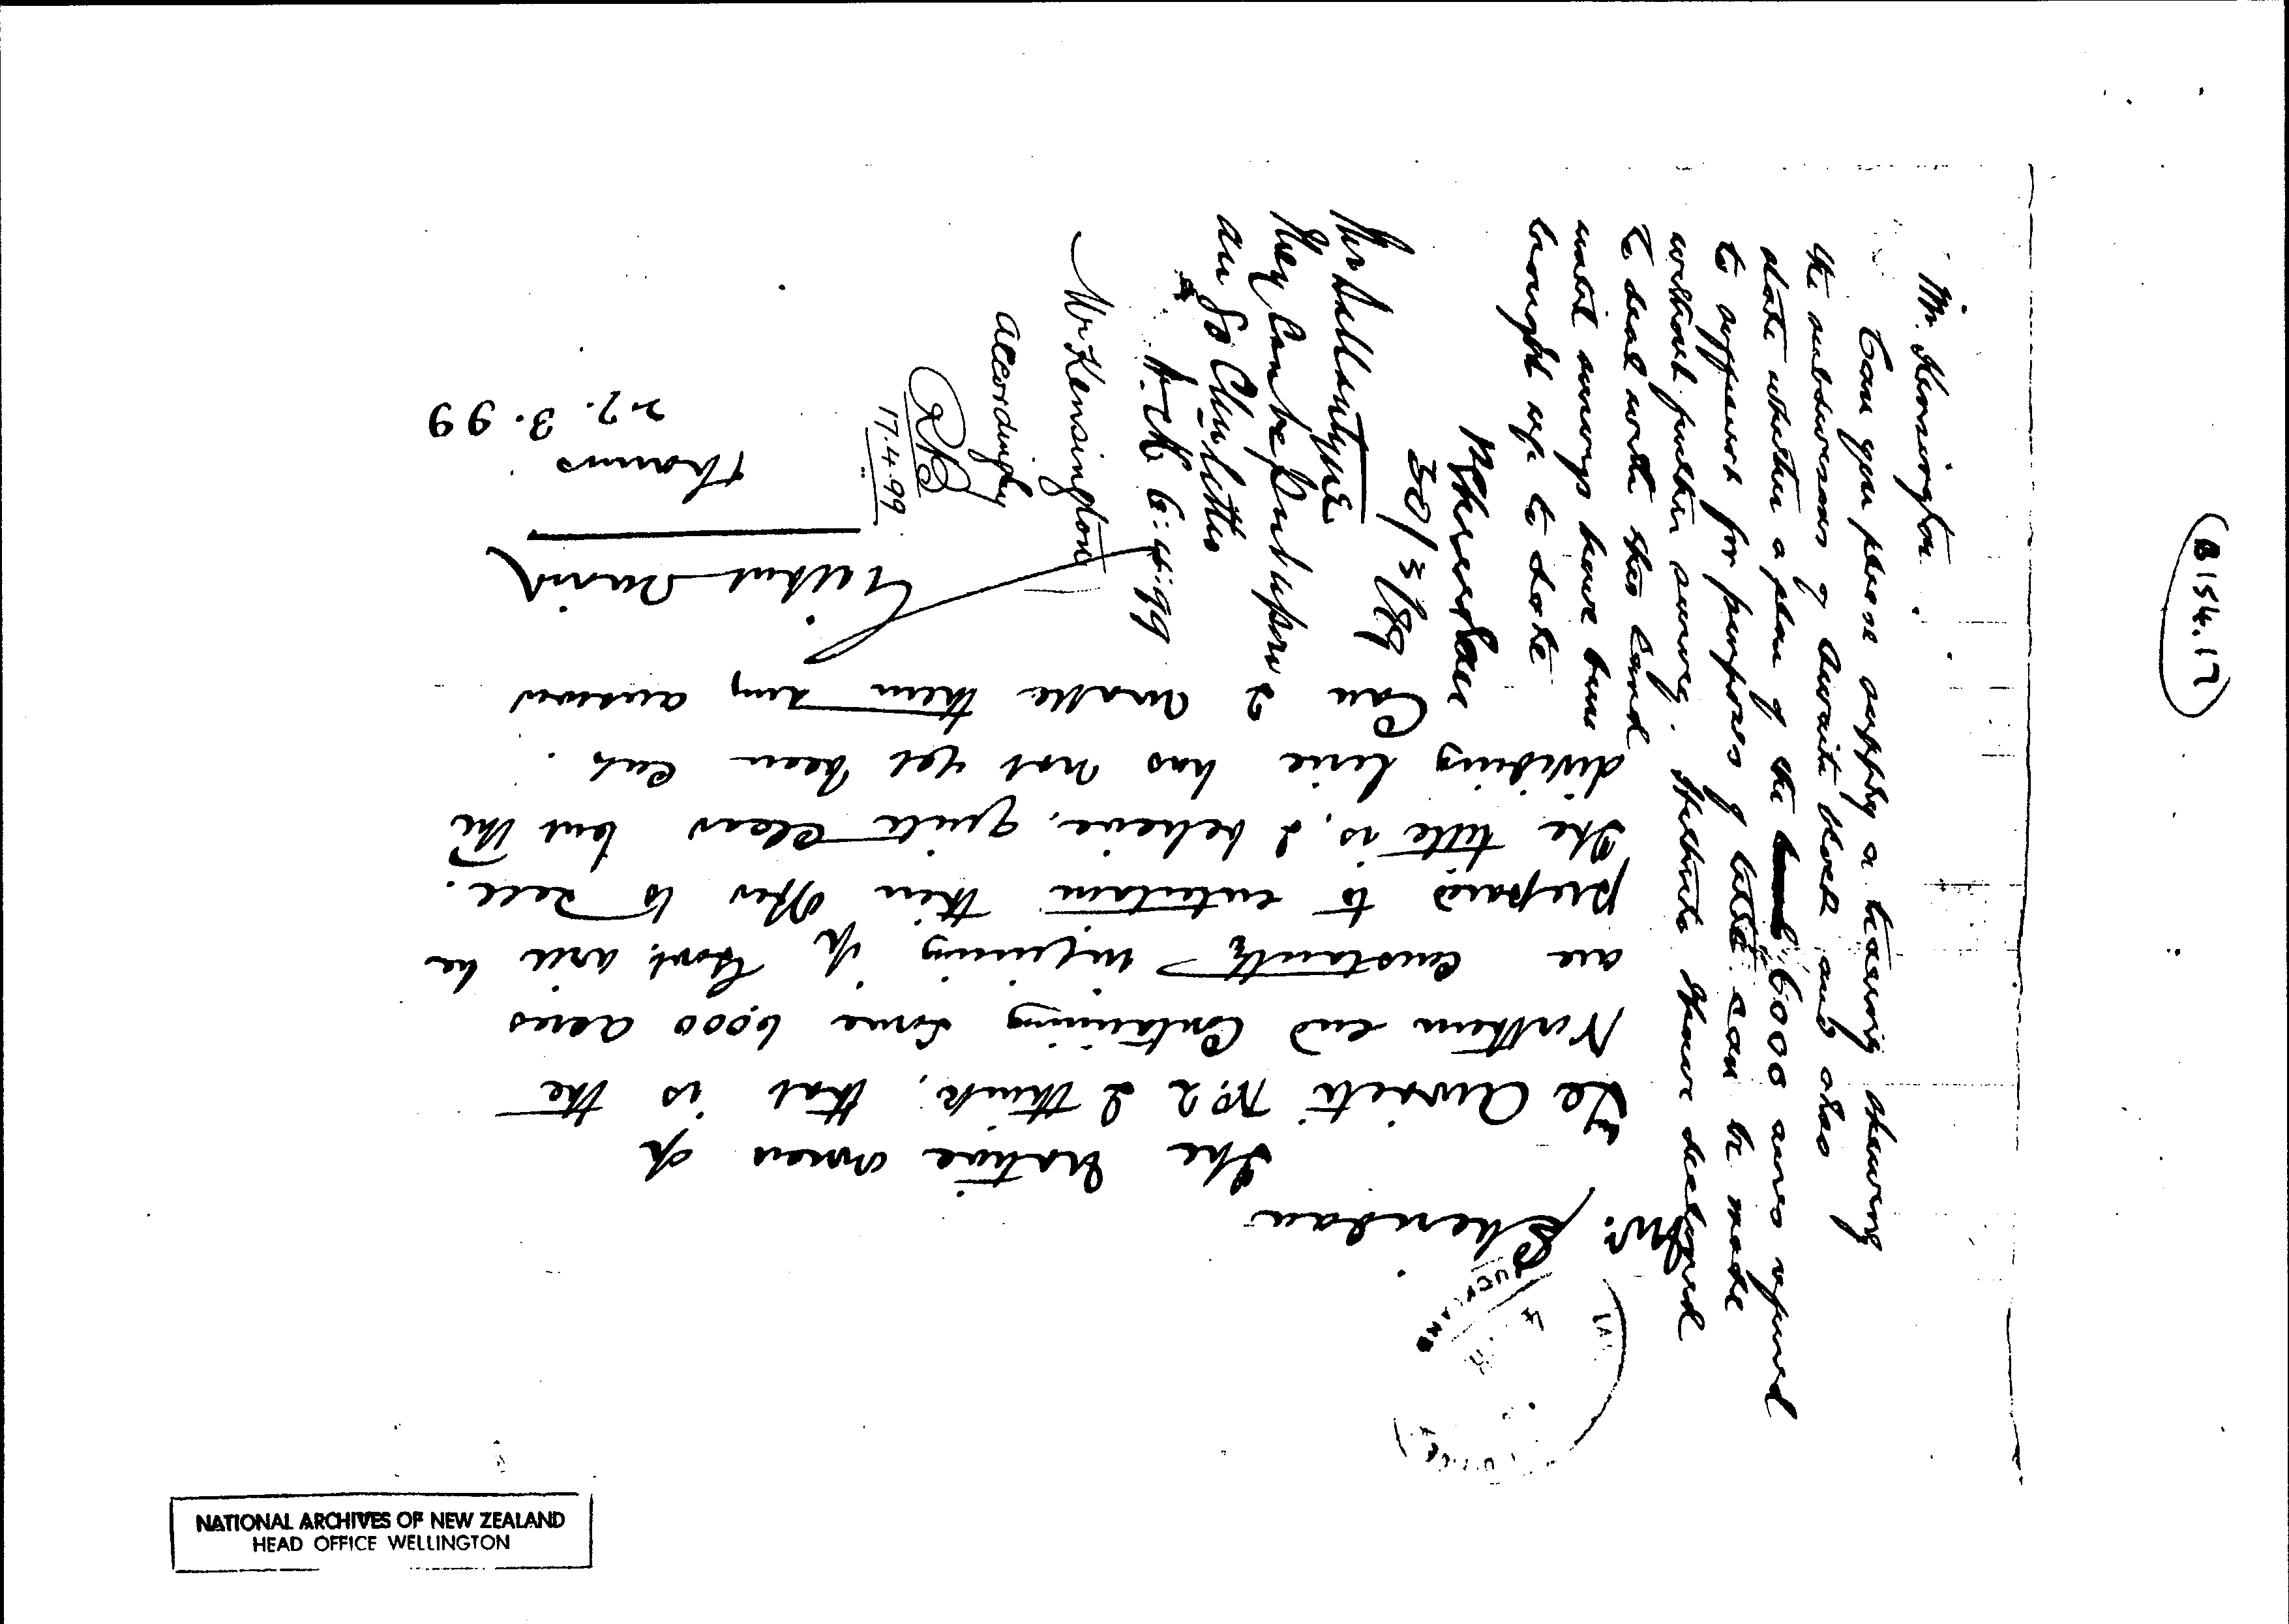 B154.17
Mr. Sheridan
The Native owners of
Te Awaiti No. 2 I think, that is the
Northern end Containing some 6,000 acres
are constantly inquiring if Govt. will be
prepared to entertain their offer to sell.
The title is, I believe, quite clear but the
dividing line has not yet been cut.
Can I make them any answer
Gilbert Mair
Thames
27.3.99
Mr. Kensington.
Can you please supply a tracing showing
the subdivisions of Awaiti block and also
state whether a plan of the 6000 acres
to approval for purposes of title can be made
without further survey.
to deal with this land
until surveys have been
brought up to date
P Sheridan
30/3/99
Mr Ballantyne
They can be put upon
an 80 Ch
6:4:99
Mr Kensington
accordingly
17.4.99
AUCKLAND
NATIONAL ARCHIVES OF NEW ZEALAND
HEAD OFFICE WELLINGTON